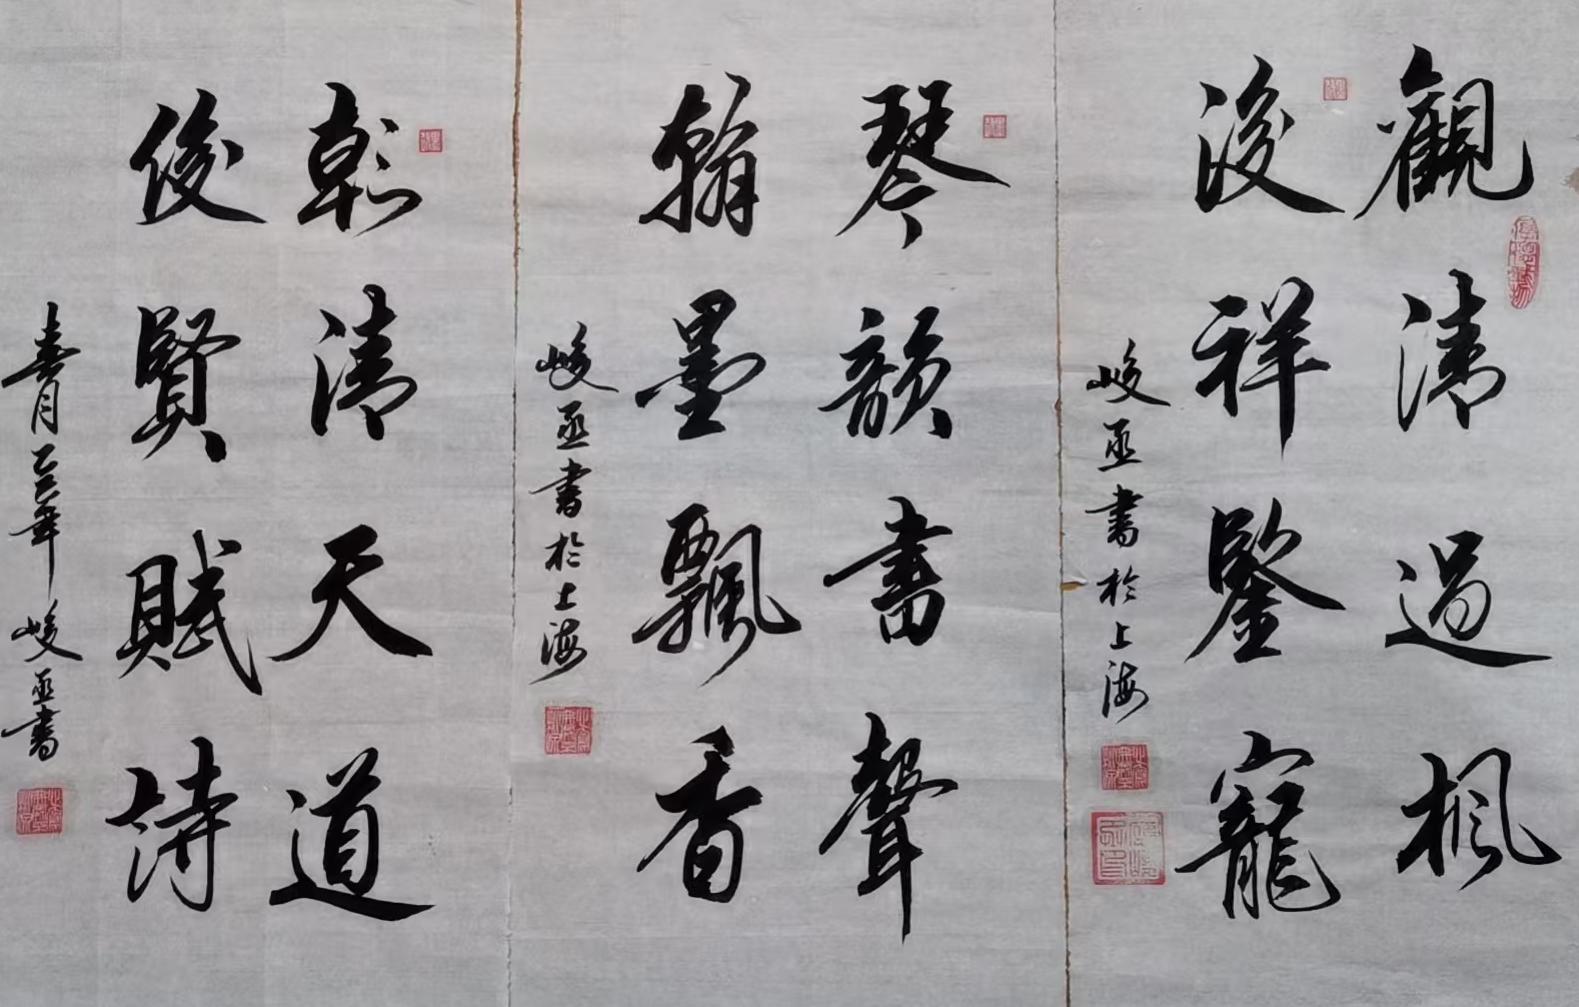 觀清過楓
浚祥鑒寵
峻丞書於上海
琴韻書聲
翰墨飄香
峻丞書於上海
彰清天道
俊賢賦詩
春月乙巳年峻丞書